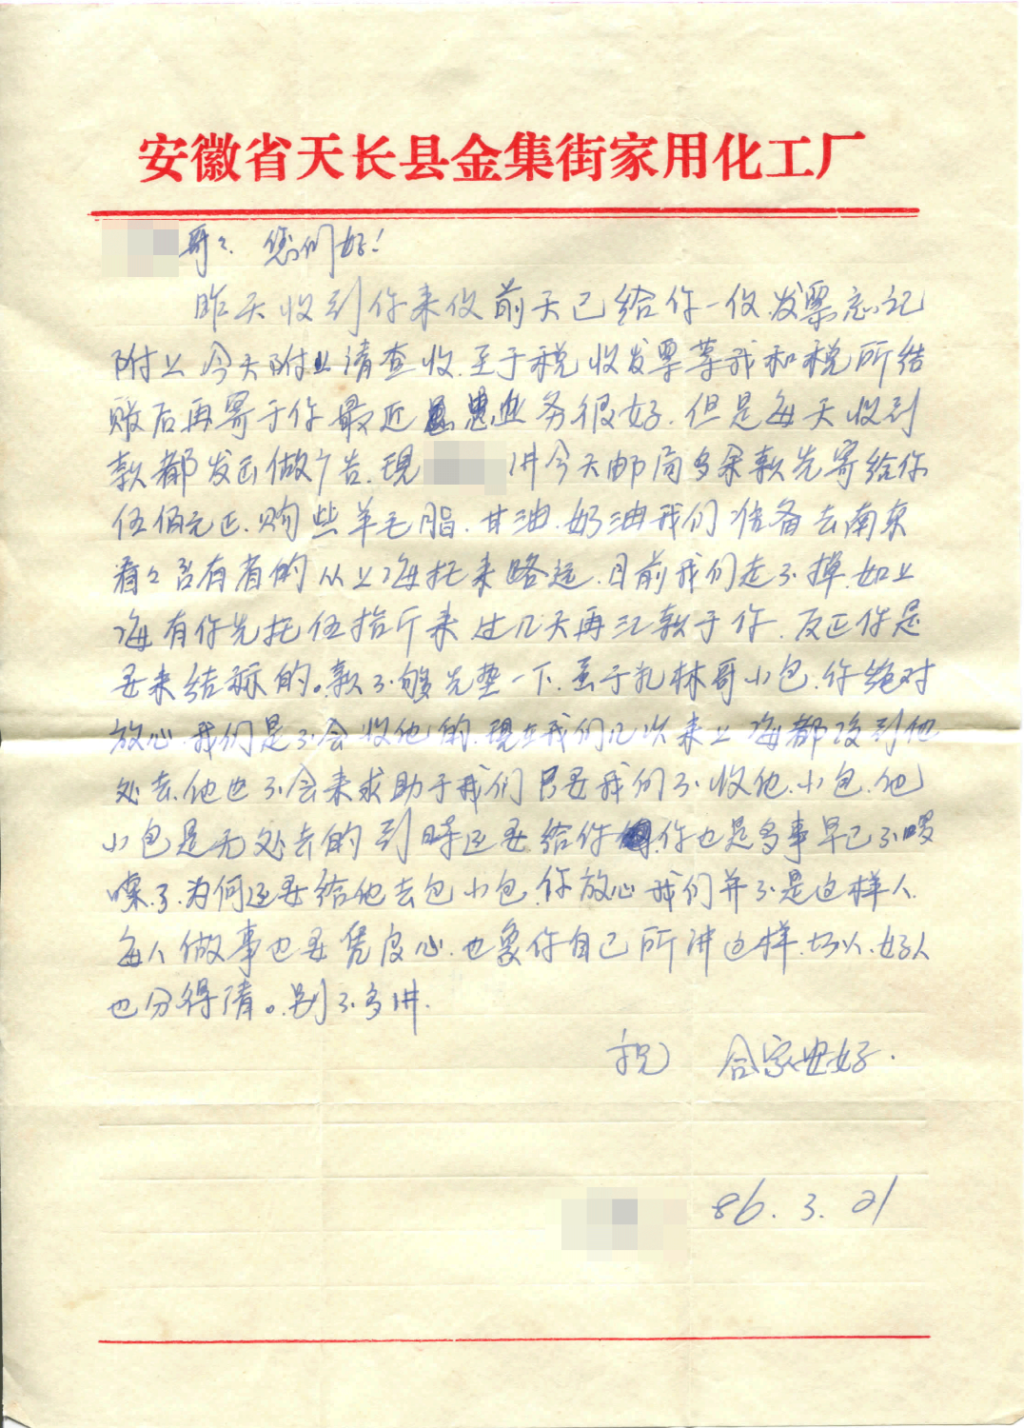 安徽省天长县金集街家用化工厂
哥々、您们好！
昨天收到你来仪前天已给你一仪.发票忘记
附上今天附上请查收.至于税收发票等我和税所结
账后再寄于你最近业务很好.但是每天收到
款都发出做广告.现 讲今天邮局多余款先寄给你
伍佰元正.购些羊毛脂.甘油.奶油我们准备去南京
看々否有有的从上海托来路远.目前我们走不掉.如上
海有你先托伍拾斤来过几天再汇款于你.反正你是
要来结标的。款不够先垫一下.至于扎林哥小包.你绝对
放心.我们是不会收他的.现在我们几次来上海都没到他
处去.他也不会来求助于我们只要我们不收他.小包.他
小包是无处去的到时还要给你 你也是多事早已不啰
嗦了.为何还要给他去包小包.你放心我们并不是这样人.
每人做事也要凭良心.也象你自己所讲这样.坏人.好人
也分得清。别不多讲.
祝 合家安好.
86.3.21